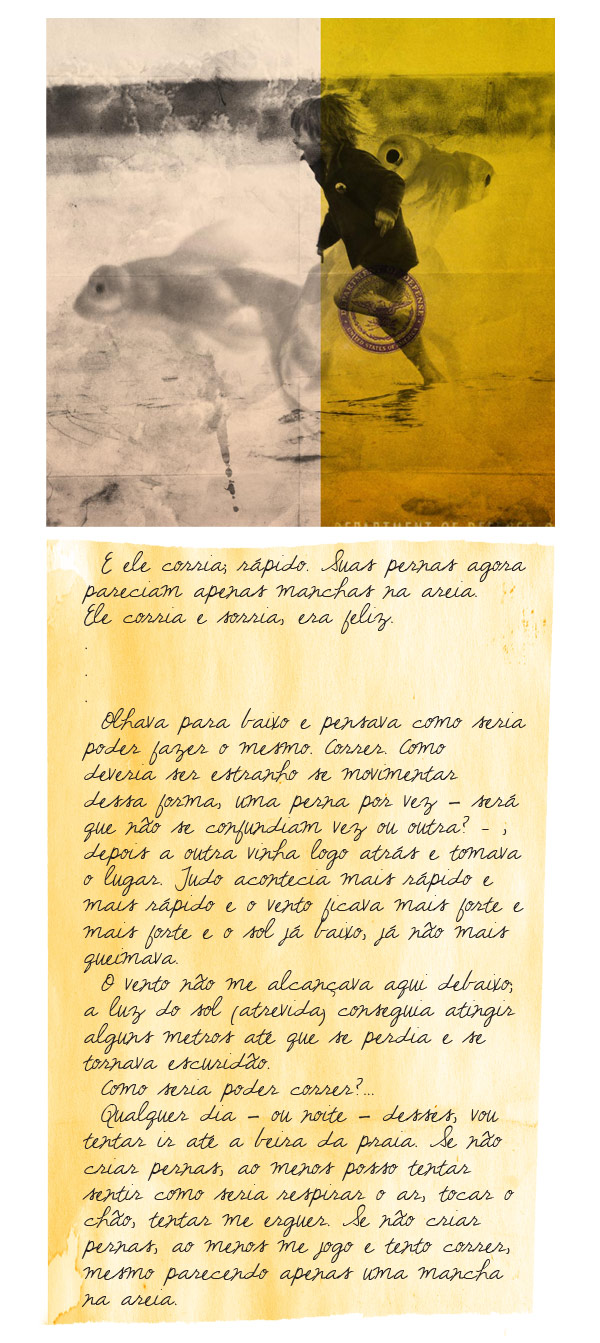 DEPARTMENT OF DEFENSE
UNITED STATES OF AMERICA
DEPARTMENT OF DEFENSE
E ele corria; rápido. Suas pernas agora
pareciam apenas manchas na areia.
Ele corria e sorria, era feliz.
.
.
.
Olhava para baixo e pensava como seria
poder fazer o mesmo. Correr. Como
deveria ser estranho se movimentar
dessa forma, uma perna por vez – será
que não se confundiam vez ou outra? - ;
depois a outra vinha logo atrás e tomava
o lugar. Tudo acontecia mais rápido e
mais rápido e o vento ficava mais forte e
mais forte e o sol já baixo, já não mais
queimava.
O vento não me alcançava aqui debaixo;
a luz do sol (atrevida) conseguia atingir
alguns metros até que se perdia e se
tornava escuridão.
Como seria poder correr?...
Qualquer dia – ou noite – desses, vou
tentar ir até a beira da praia. Se não
criar pernas, ao menos posso tentar
sentir como seria respirar o ar, tocar o
chão, tentar me erguer. Se não criar
pernas, ao menos me jogo e tento correr,
mesmo parecendo apenas uma mancha
na areia.